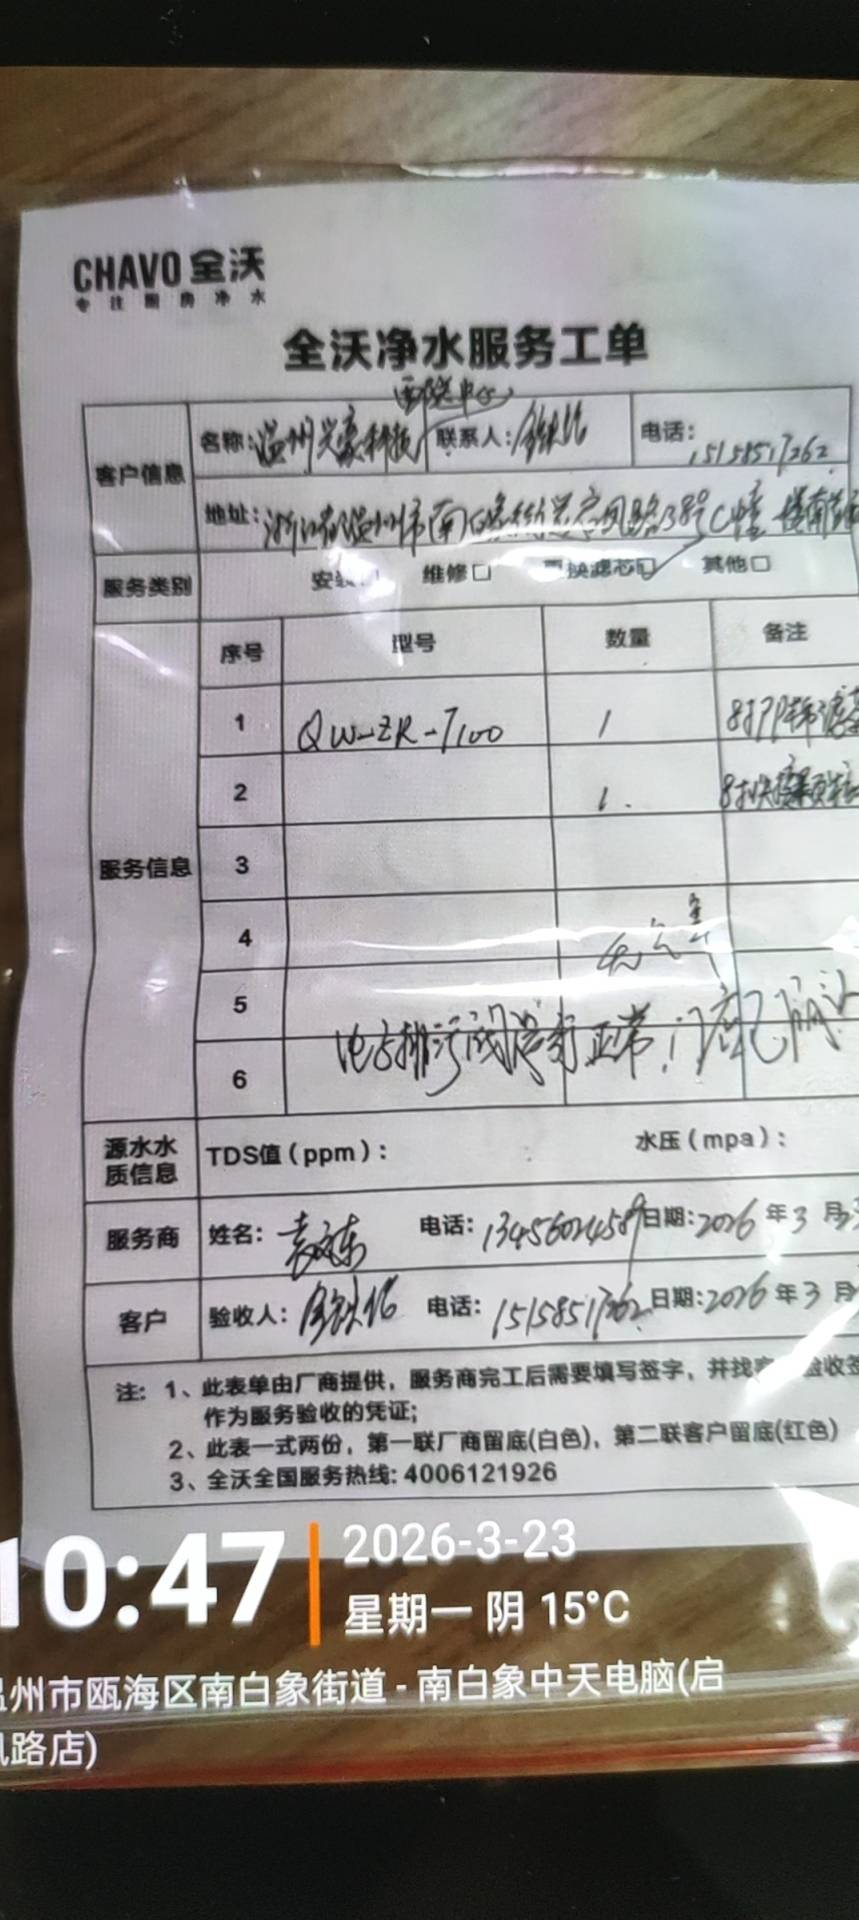 CHAVO 全沃
专注厨房净水
全沃净水服务工单
客户信息
名称: 温州兴豪科技 联系人: 电话: 15158517262
地址: 浙江省温州市南白象街道启风路38号C幢
服务类别 安装 维修□ 更换滤芯☑ 其他□
服务信息
序号 型号 数量 备注
1 QW-ZR-T100 1 8寸PP棉滤
2 1. 8寸
3
4
5
6
排污阀 正常,
源水水质信息 TDS值(ppm): 水压(mpa):
服务商 姓名: 电话: 13456024589 日期: 2026年3月
客户 验收人: 电话: 15158517262 日期: 2026年3月
注: 1、此表单由厂商提供，服务商完工后需要填写签字，并找 验收签
作为服务验收的凭证;
2、此表一式两份，第一联厂商留底(白色)，第二联客户留底(红色)
3、全沃全国服务热线: 4006121926
10:47 2026-3-23
星期一 阴 15°C
温州市瓯海区南白象街道 - 南白象中天电脑(启
风路店)